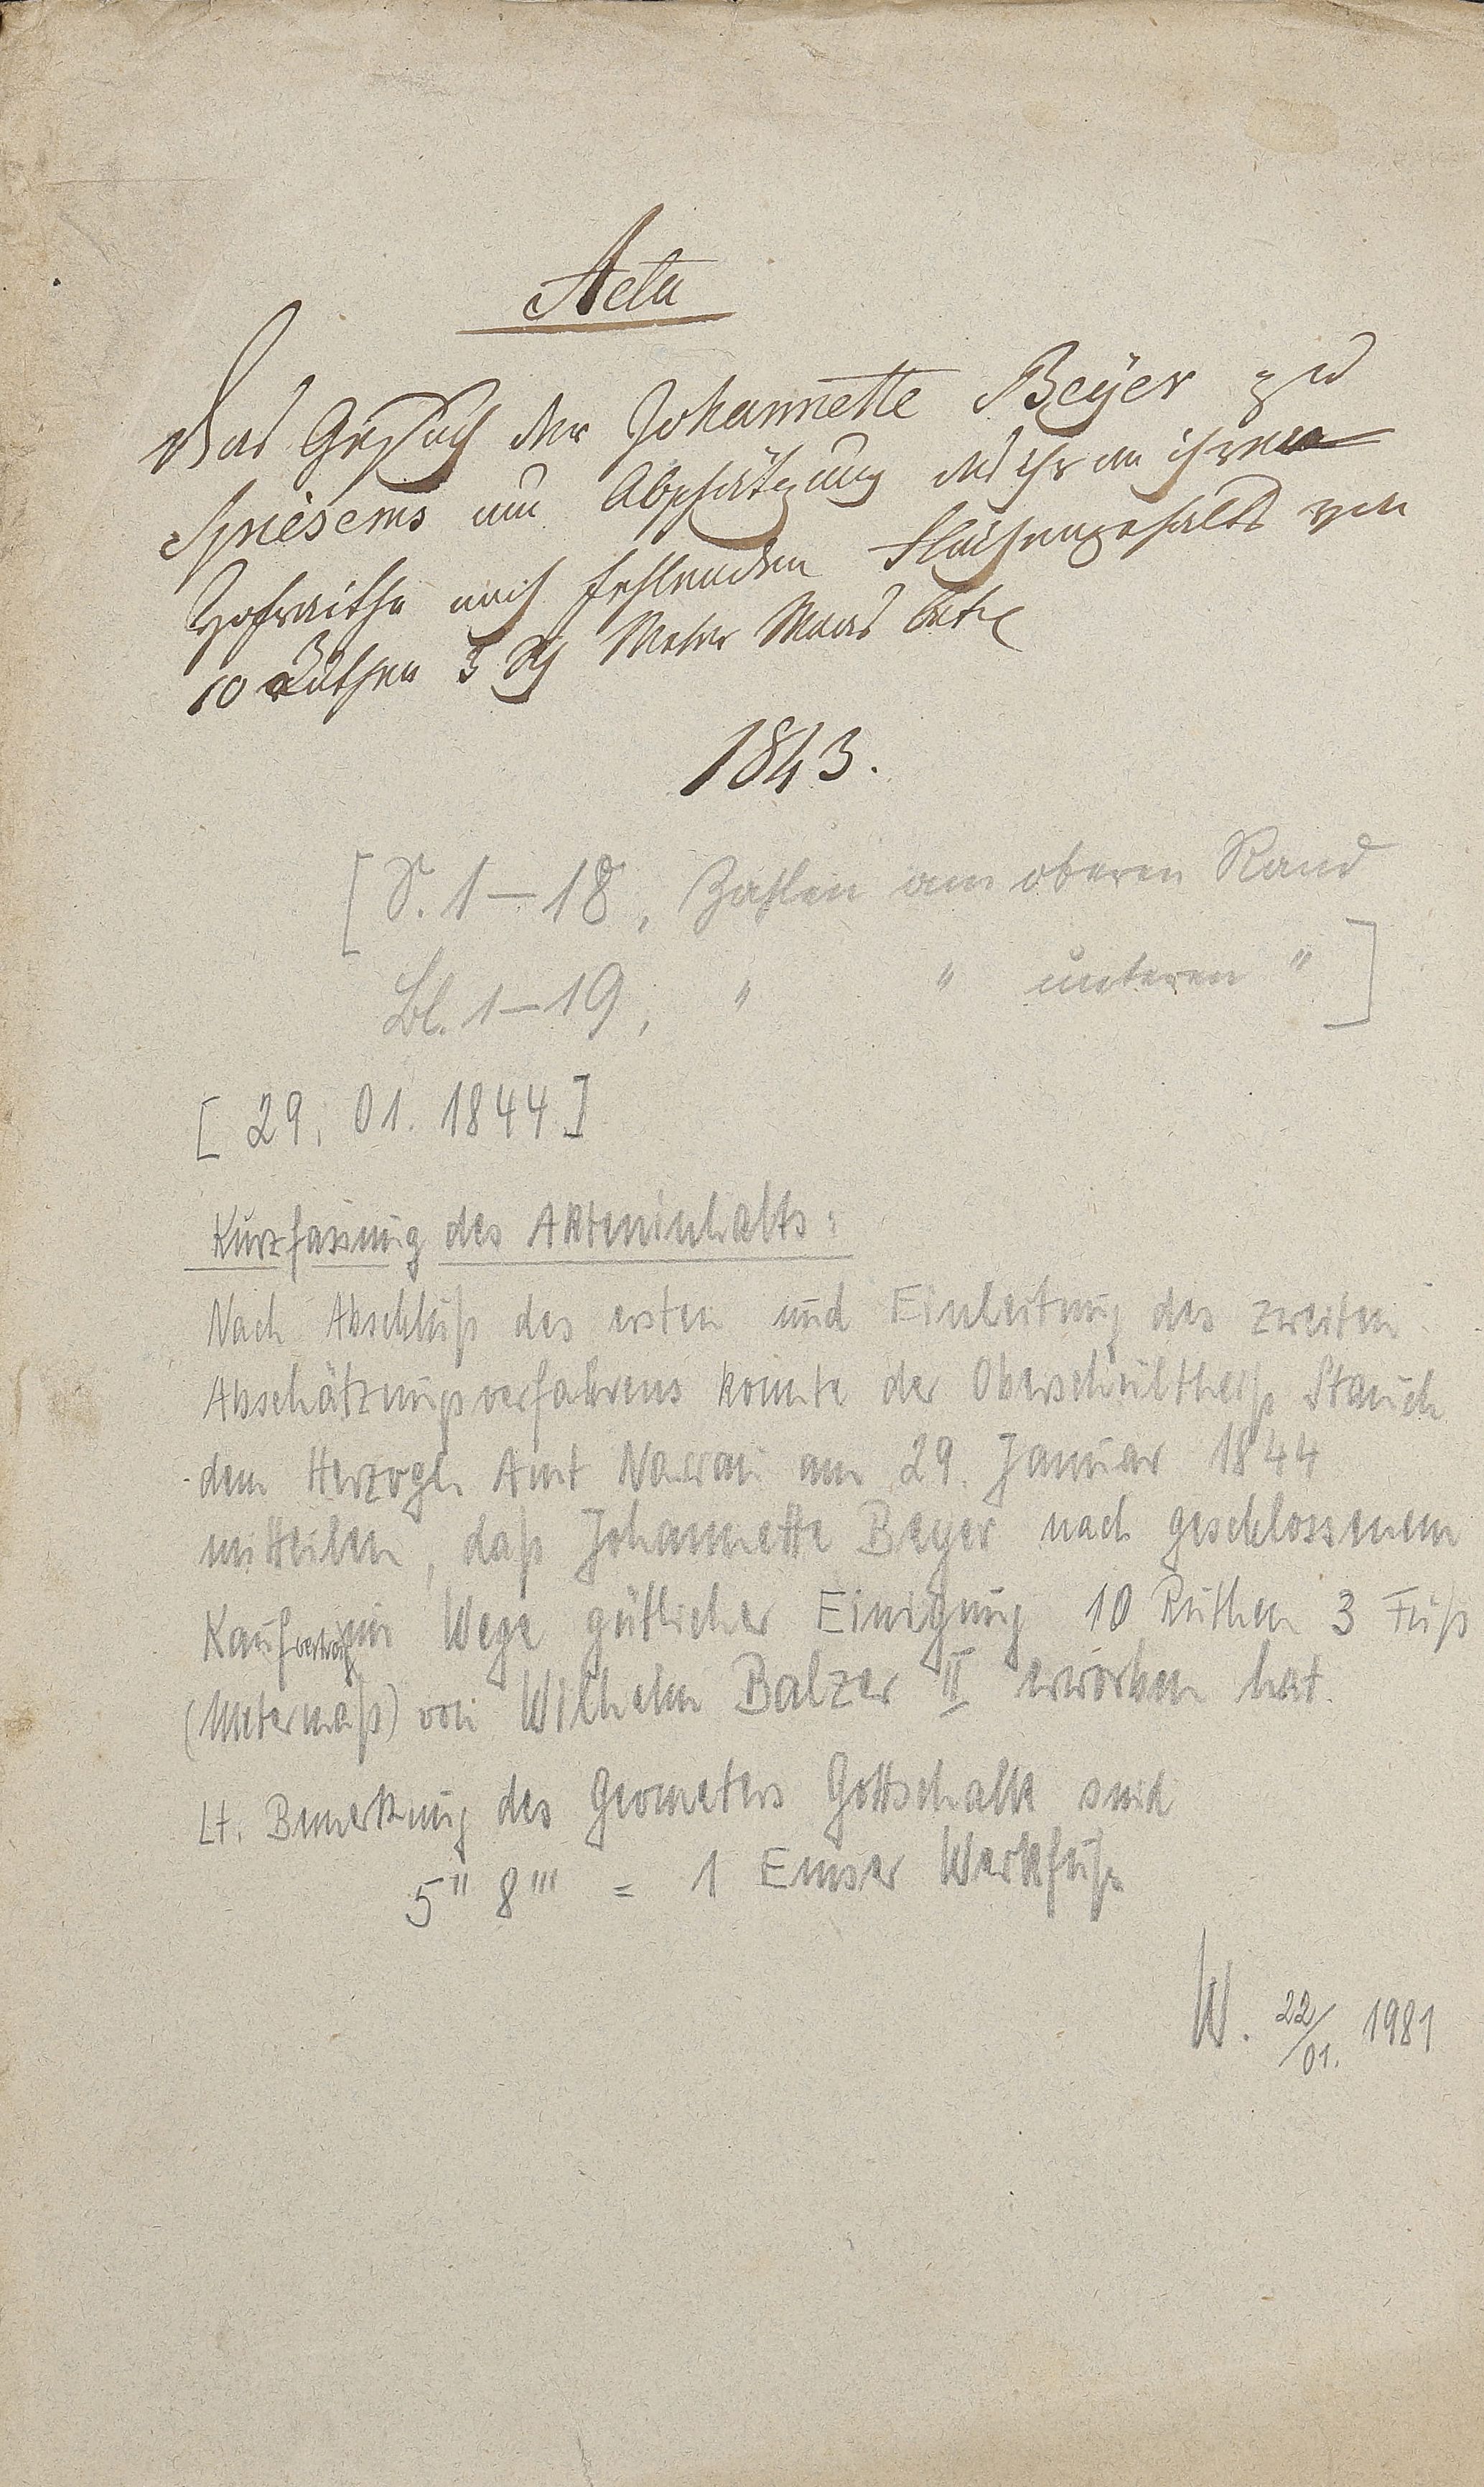 Acta
Das Gesuch der Johannette Beyer zu
Spriesems um Abschätzung des ihr an ihrer
Hofraithe noch fehlenden Flächengehalts von
10 Ruthen 3 Sch Meter Maas betr
1843.
[S. 1–18, Zahlen am oberen Rand
Bl. 1–19, " " unteren "]
[29. 01. 1844]
Kurzfassung des Akteninhalts:
Nach Abschluß des ersten und Einleitung des zweiten
Abschätzungsverfahrens konnte der Oberschultheiß Stauch
dem Herzogl. Amt Nassau am 29. Januar 1844
mitteilen, daß Johannette Beyer nach geschlossenem
Kaufvertrag im Wege gütlicher Einigung 10 Ruthen 3 Fuß
(Metermaß) von Wilhelm Balzer II erworben hat.
Lt. Bemerkung des Geometers Gottschalk sind
5" 8"' = 1 Emser Werkfuß
W. 22/01. 1981